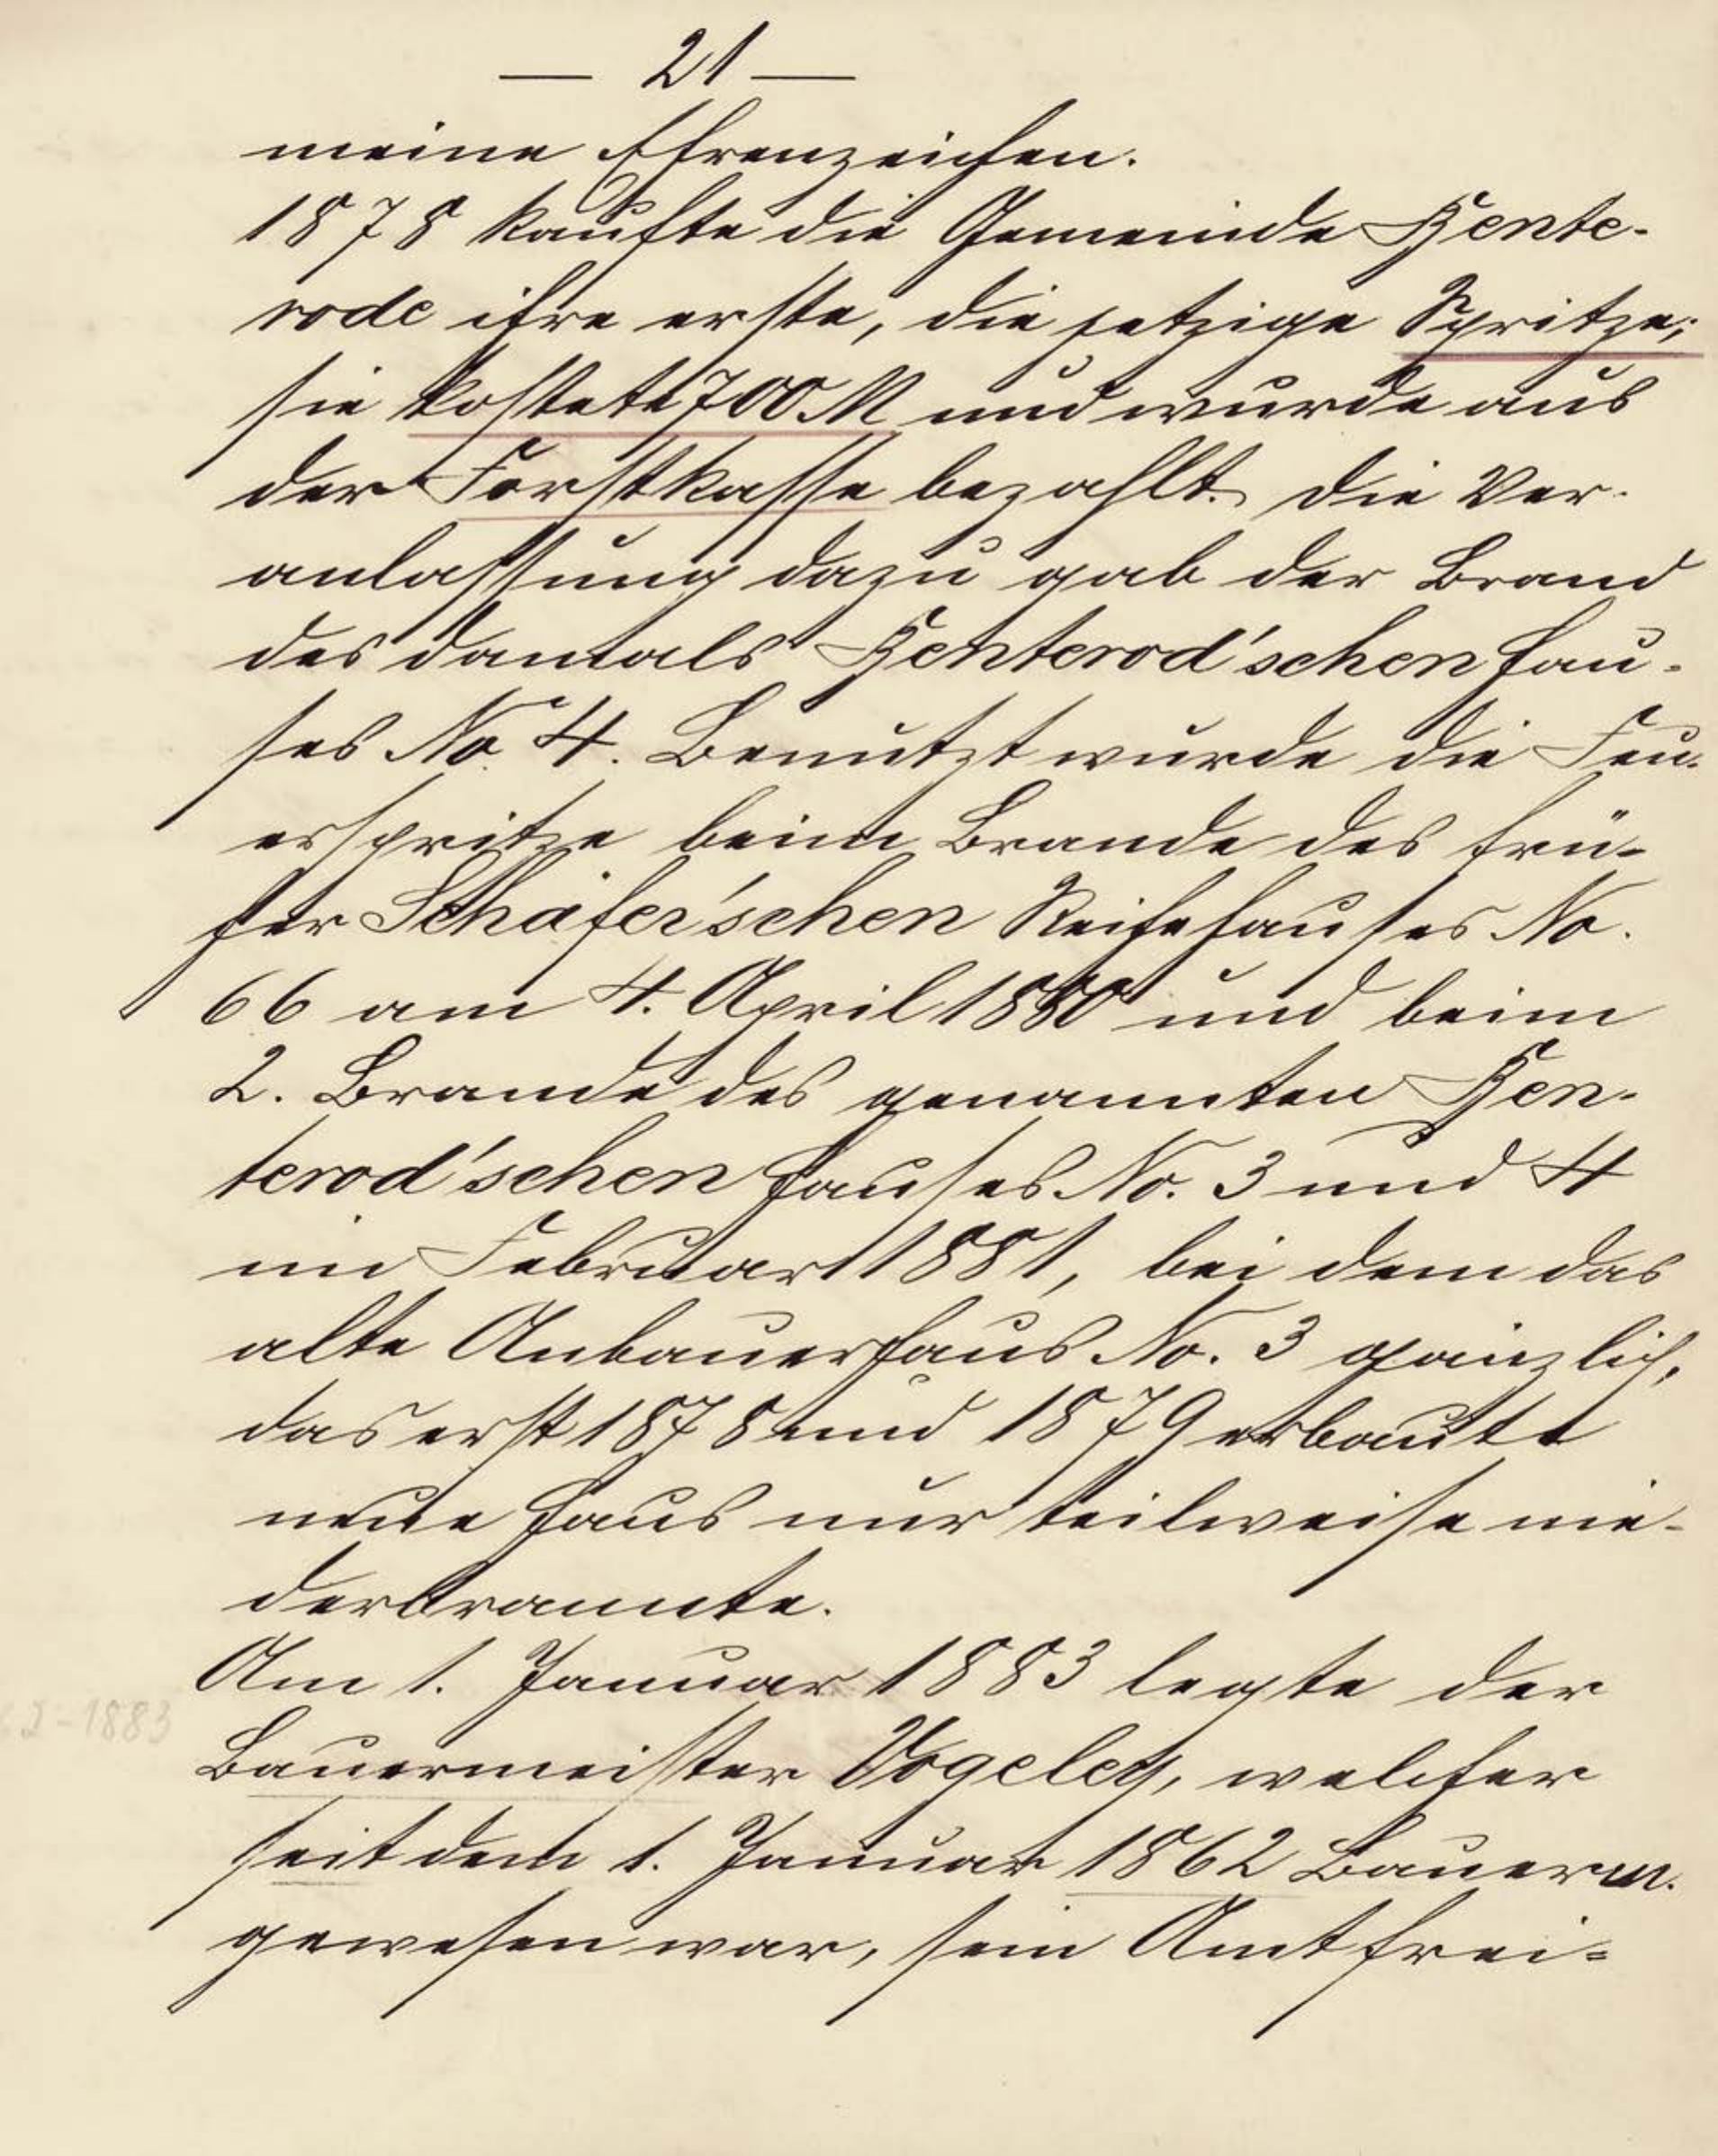 — 21 —
meine Ehrenzeichen.
1878 kaufte die Gemeinde Hente-
rode ihre erste, die jetzige Spritze;
sie kostete 700 M und wurde aus
der Forstkasse bezahlt. Die Ver-
anlassung dazu gab der Brand
des damals Henterod'schen Hau-
ses No. 4. Benutzt wurde die Feu-
erspritze beim Brande des frü-
her Schäfer'schen Reihehauses No.
66 am 4. April 1880 und beim
2. Brande des genannten Hen-
terod'schen Hauses No. 3 und 4
im Februar 1881, bei dem das
alte Anbauerhaus No. 3 gänzlich,
das erst 1878 und 1879 erbaute
neue Haus nur teilweise nie-
derbrannte.
Am 1. Januar 1883 legte der
62-1883
Bauermeister Vogeley, welcher
seit dem 1. Januar 1862 Bauerm.
gewesen war, sein Amt frei-